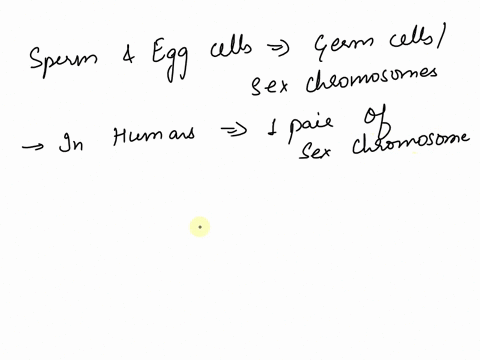 Sperm & Egg cells ⇒ Germ cells/
sex chromosomes
→ In Humans ⇒ 1 pair of
sex chromosome